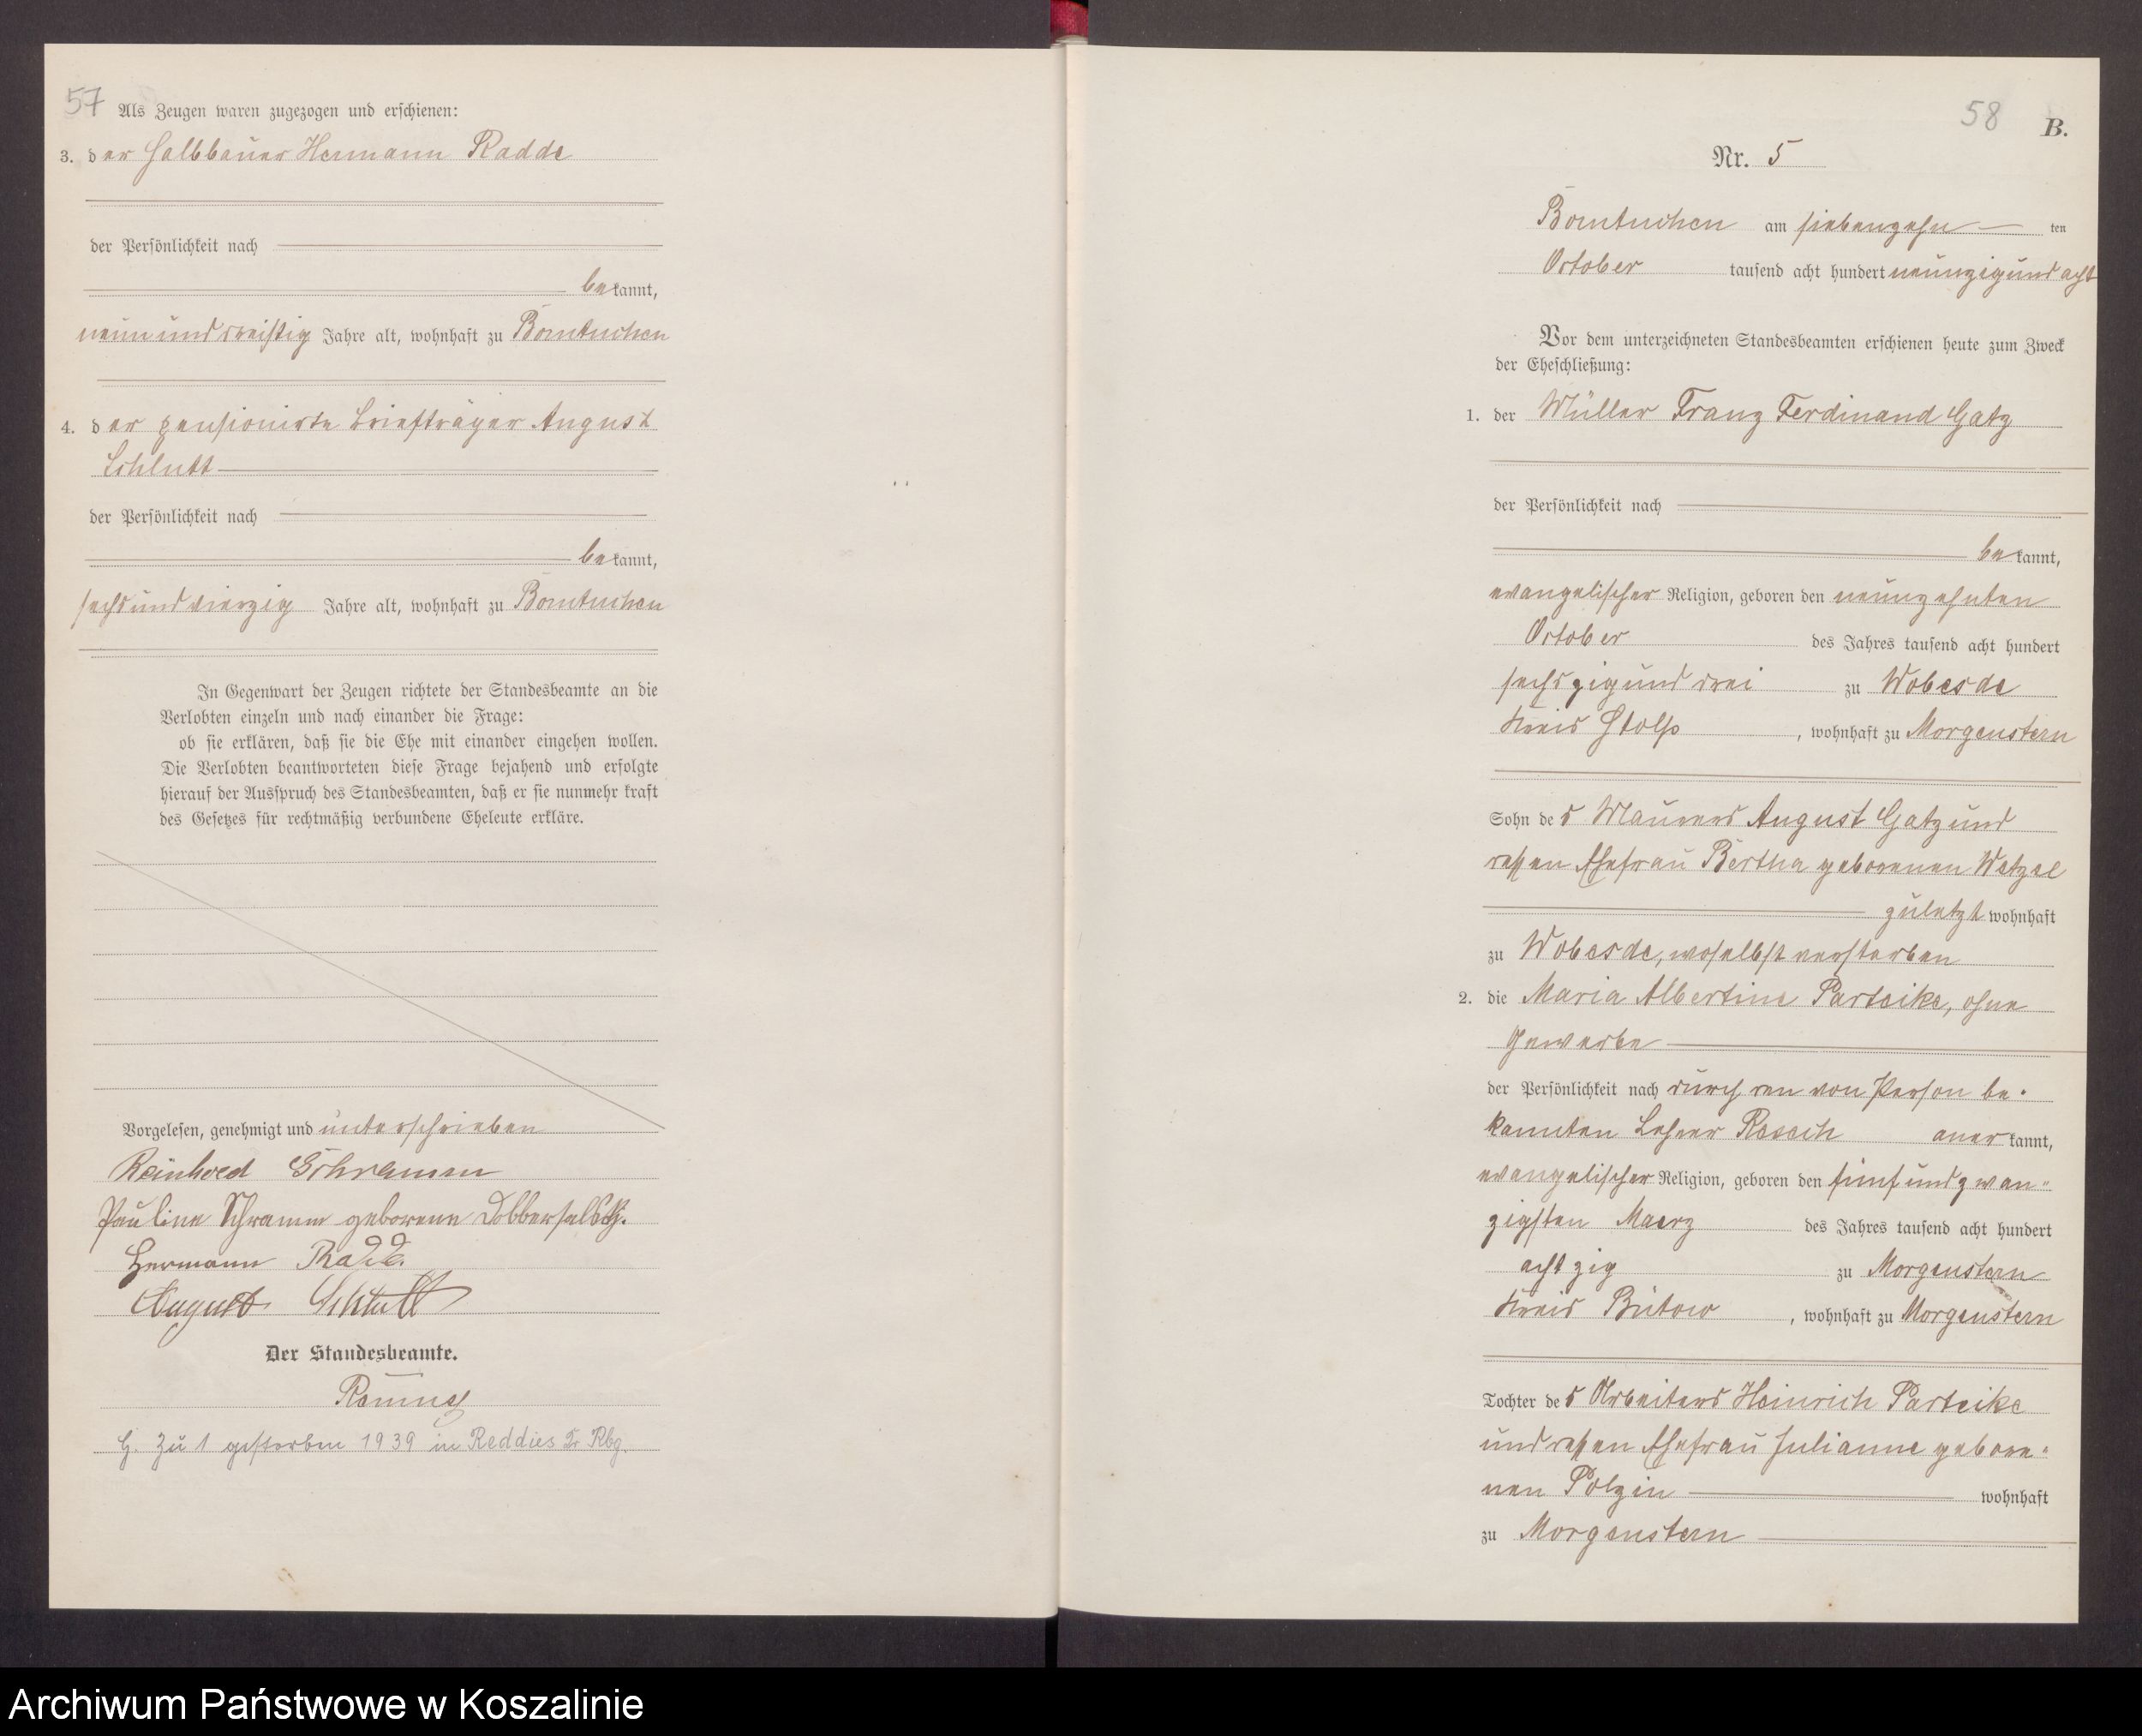 57 Als Zeugen waren zugezogen und erschienen:
3. der Halbbauer Hermann Radde
der Persönlichkeit nach
bekannt,
neununddreißig Jahre alt, wohnhaft zu Borntuchen
4. der pensionirte Briefträger August
Schlutt
der Persönlichkeit nach
bekannt,
sechsundvierzig Jahre alt, wohnhaft zu Borntuchen
In Gegenwart der Zeugen richtete der Standesbeamte an die
Verlobten einzeln und nach einander die Frage:
ob sie erklären, daß sie die Ehe mit einander eingehen wollen.
Die Verlobten beantworteten diese Frage bejahend und erfolgte
hierauf der Ausspruch des Standesbeamten, daß er sie nunmehr kraft
des Gesetzes für rechtmäßig verbundene Eheleute erkläre.
Vorgelesen, genehmigt und unterschrieben
Reinhold Schramm
Pauline Schramm geborene
Hermann Radde
August Schlutt
Der Standesbeamte.
G. Zu 1 gestorben 1939 in Reddies Kr Rbg.
58
B.
Nr. 5
Borntuchen am siebenzehn ten
October tausend acht hundert neunzigundacht
Vor dem unterzeichneten Standesbeamten erschienen heute zum Zweck
der Eheschließung:
1. der Müller Franz Ferdinand Gatz
der Persönlichkeit nach
bekannt,
evangelischer Religion, geboren den neunzehnten
October des Jahres tausend acht hundert
sechszigunddrei zu Wobesde
Kreis Stolp, wohnhaft zu Morgenstern
Sohn des Maurers August Gatz und
dessen Ehefrau Bertha geborenen Wetzel
zuletzt wohnhaft
zu Wobesde, woselbst verstorben
2. die Maria Albertine Parteike, ohne
Gewerbe
der Persönlichkeit nach durch den von Person be-
kannten Lehrer Rasch anerkannt,
evangelischer Religion, geboren den fünfundzwan-
zigsten Maerz des Jahres tausend acht hundert
achtzig zu Morgenstern
Kreis Bütow, wohnhaft zu Morgenstern
Tochter des Arbeiters Heinrich Parteike
und dessen Ehefrau Julianne gebore-
nen Polzin wohnhaft
zu Morgenstern
Archiwum Państwowe w Koszalinie